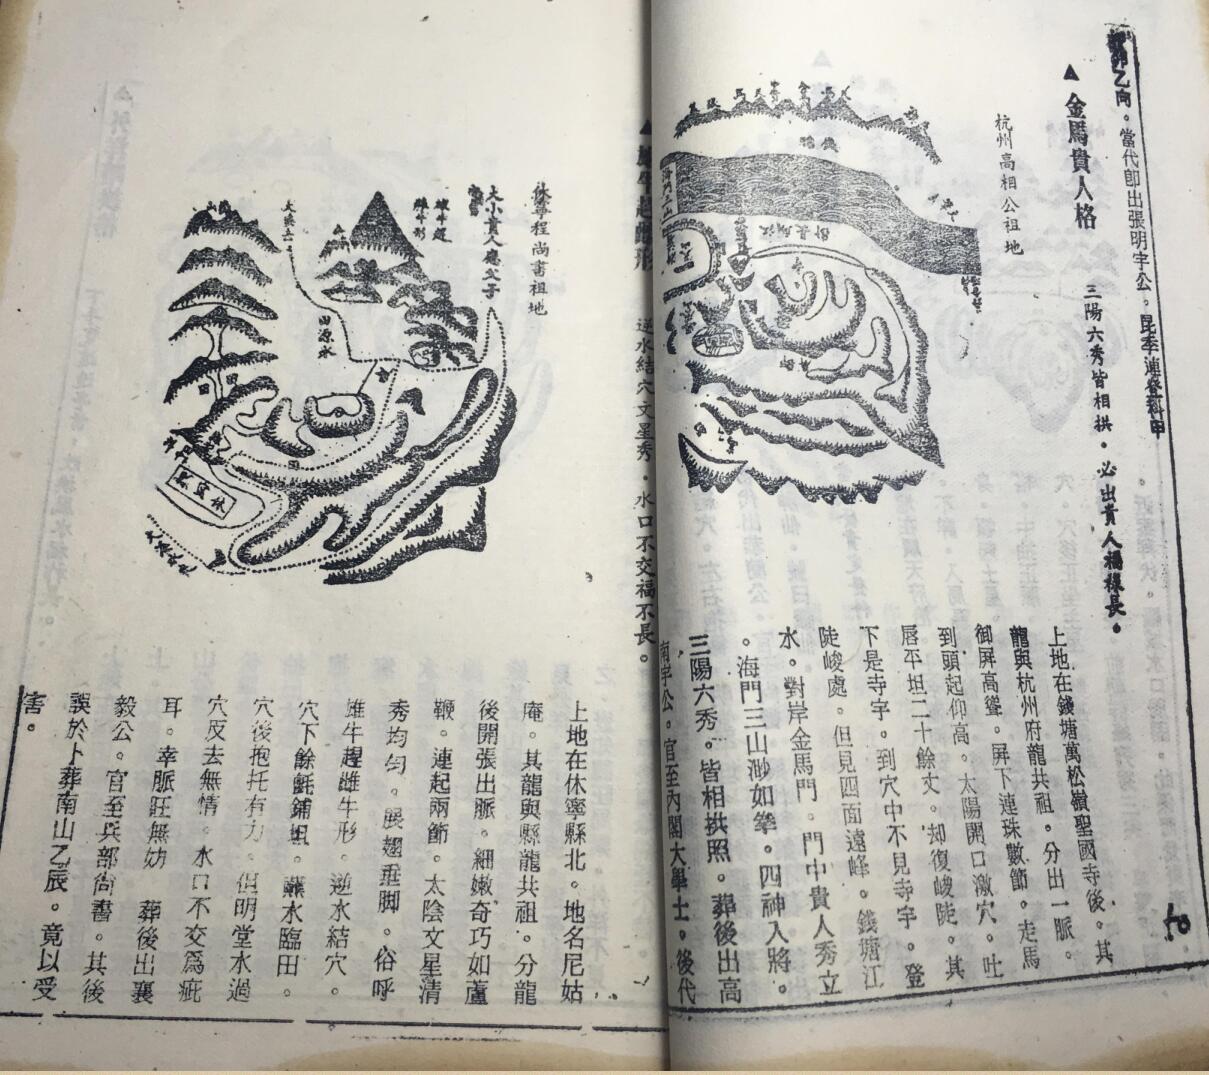 乙向。當代卽出張明宇公。昆季連登科甲
▲金馬貴人格
三陽六秀皆相拱．必出貴人福祿長。
杭州高相公祖地
上地在錢塘萬松嶺聖國寺後。其
龍與杭州府龍共祖。分出一脈。
御屏高聳。屏下連珠數節。走馬
到頭起仰高。太陽開口激穴。吐
唇平坦二十餘丈。却復峻陡。其
下是寺宇。到穴中不見寺宇。登
陡峻處。但見四面遠峰。錢塘江
水。對岸金馬門。門中貴人秀立
。海門三山渺如拳。四神入將。
三陽六秀。皆相拱照。葬後出高
南宇公。官至內閣大學士。後代
逆水結穴文星秀．水口不交福不長。
休寧程尚書祖地
大小貴人應父子
雌牛趕
雄牛形
田源水
田
田
田
上地在休寧縣北。地名尼姑
庵。其龍與縣龍共祖。分龍
後開張出脈。細嫩奇巧如蘆
鞭。連起兩節。太陰文星清
秀均勻。展翅垂脚。俗呼
雄牛趕雌牛形。逆水結穴。
穴下餘氈鋪坦。蘸水臨田。
穴後抱托有力。但明堂水過
穴反去無情。水口不交爲疵
耳。幸脈旺無妨 葬後出襄
毅公。官至兵部尙書。其後
誤於卜葬南山乙辰。竟以受
害。